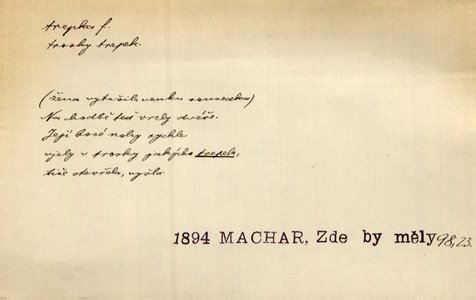 trepka f.
trosky trepek.
(žena vytušila venku sousedku)
Na chodbě teď vrzly dvéře.
Její bosé nohy rychle
vjely v trosky jakýchs trepek,
tiše otevřela, vyšla
1894 MACHAR, Zde by měly 98, 23.